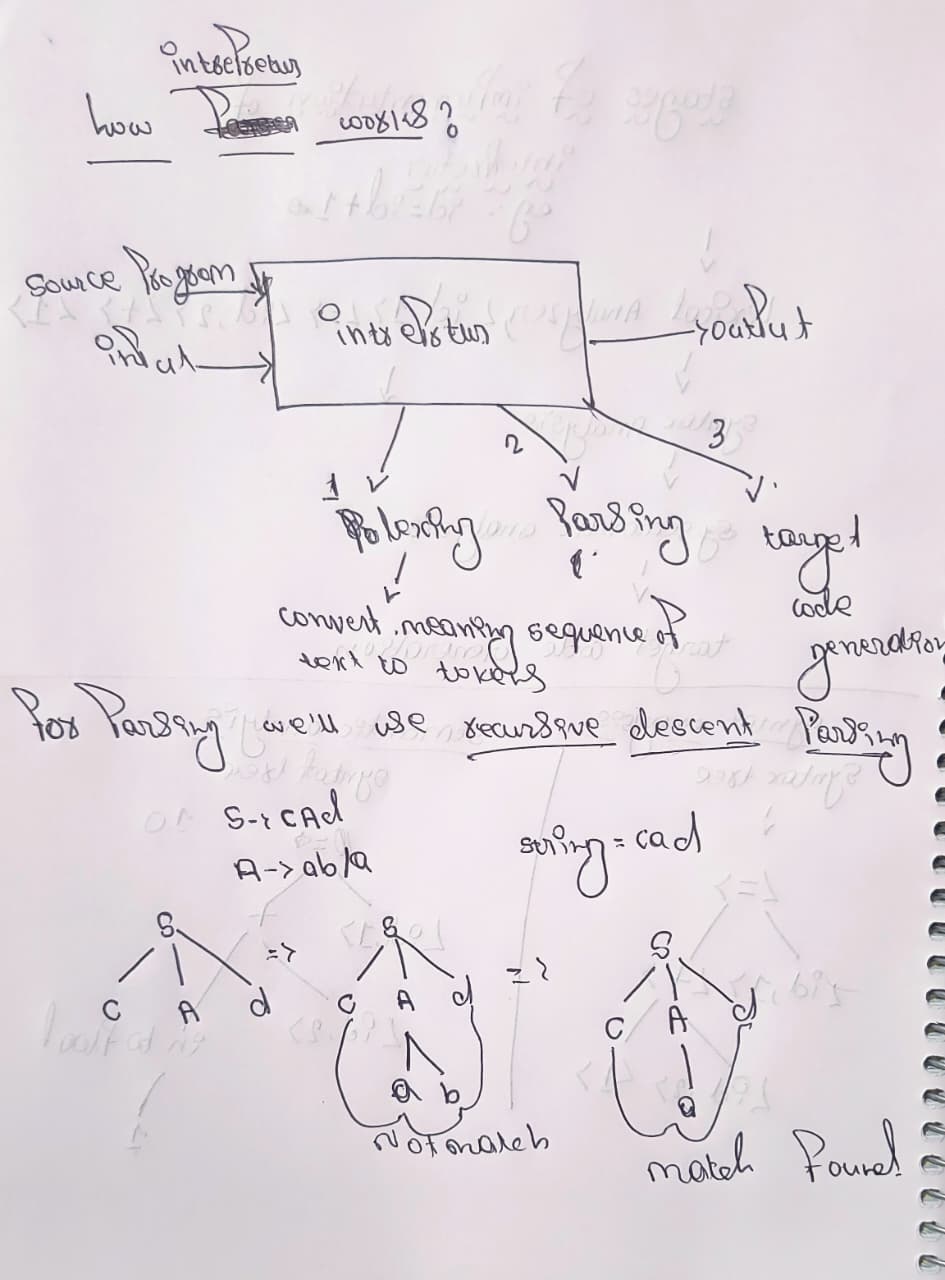 interpreter
how works?
source program
input
interpreter
output
1
2
3
lexing
Parsing
target
code
generation
convert meaning sequence of
text to tokens
for Parsing we'll use recursive descent Parsing
S-> cAd
A-> ab/a
string = cad
S
=>
S
=>
S
c A d
c A d
c A d
a b
a
Not match
match found